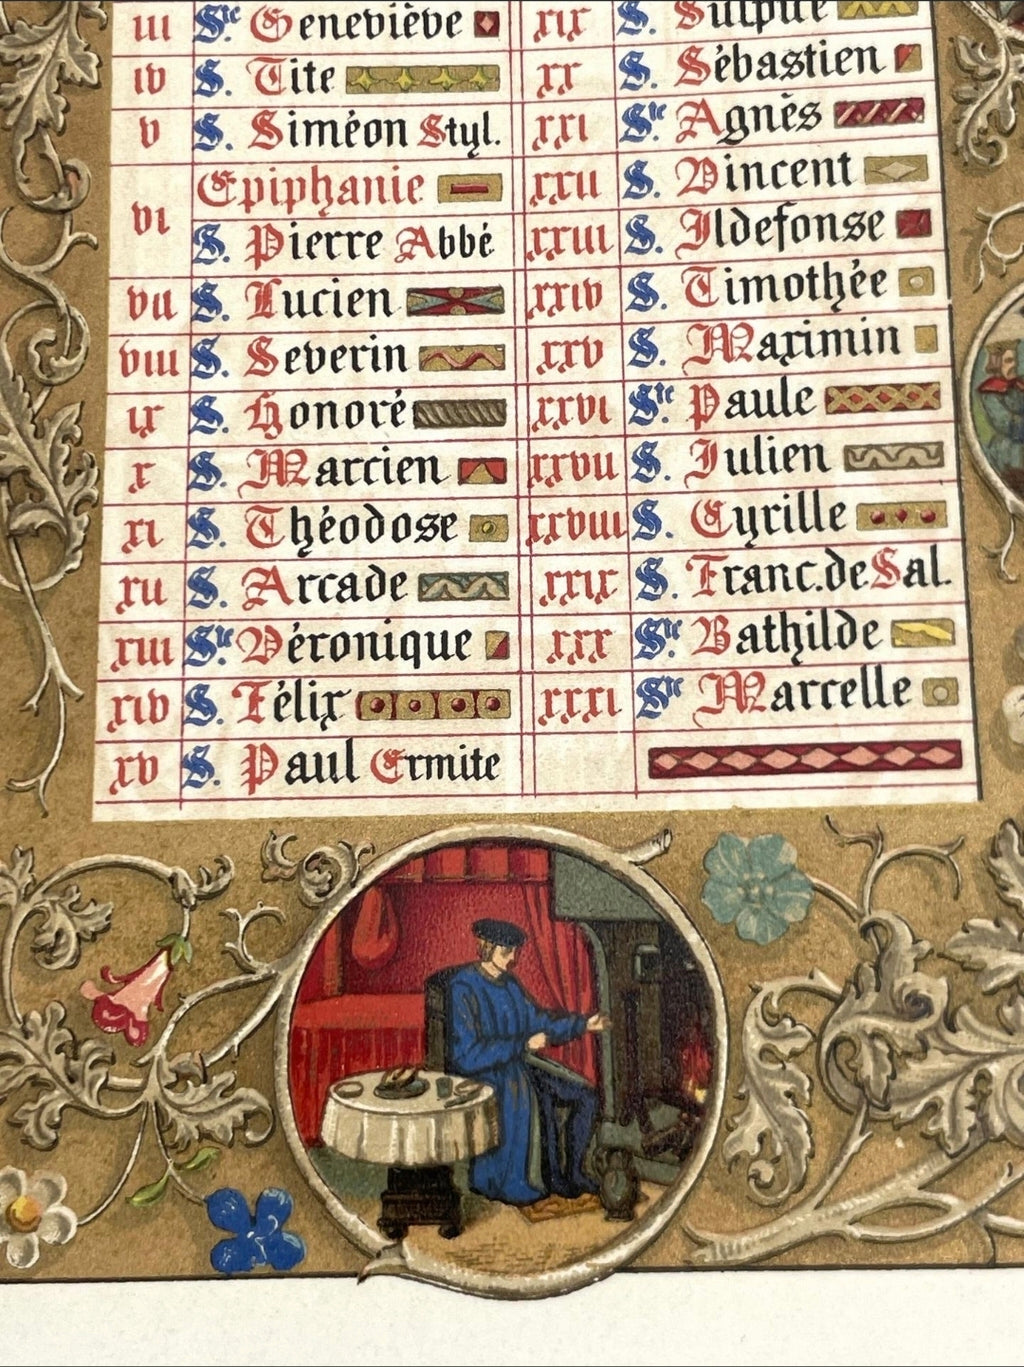 III Ste Geneviève
IV S. Tite
V S. Siméon Styl.
VI Epiphanie
S. Pierre Abbé
VII S. Lucien
VIII S. Severin
IX S. Honoré
X S. Marcien
XI S. Théodose
XII S. Arcade
XIII Ste Véronique
XIV S. Félix
XV S. Paul Ermite
XIX S. Sulpice
XX S. Sébastien
XXI Ste Agnès
XXII S. Vincent
XXIII S. Ildefonse
XXIV S. Timothée
XXV S. Maximin
XXVI Ste Paule
XXVII S. Julien
XXVIII S. Cyrille
XXIX S. Franc. de Sal.
XXX Ste Bathilde
XXXI Ste Marcelle